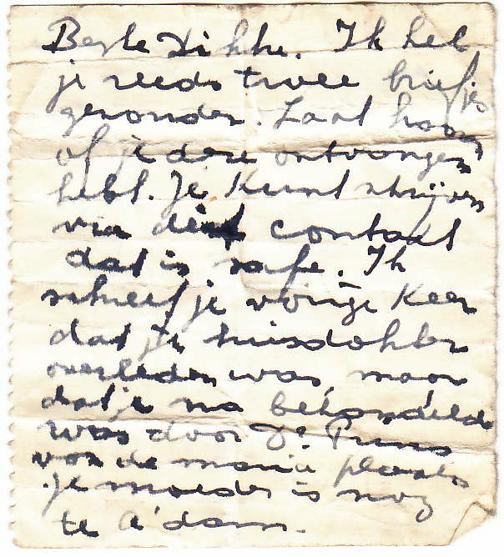 Beste Dikke. Ik heb
je reeds twee briefjes
gezonden. Laat horen
of je deze ontvangen
hebt. Je kunt schrijven
via dit contact
dat is safe. Ik
schreef je vorige keer
dat je huisdokter
overleden was, maar
dat je nu behandeld
was door Dr.
van de plaats
je moeder is nog
te A'dam.